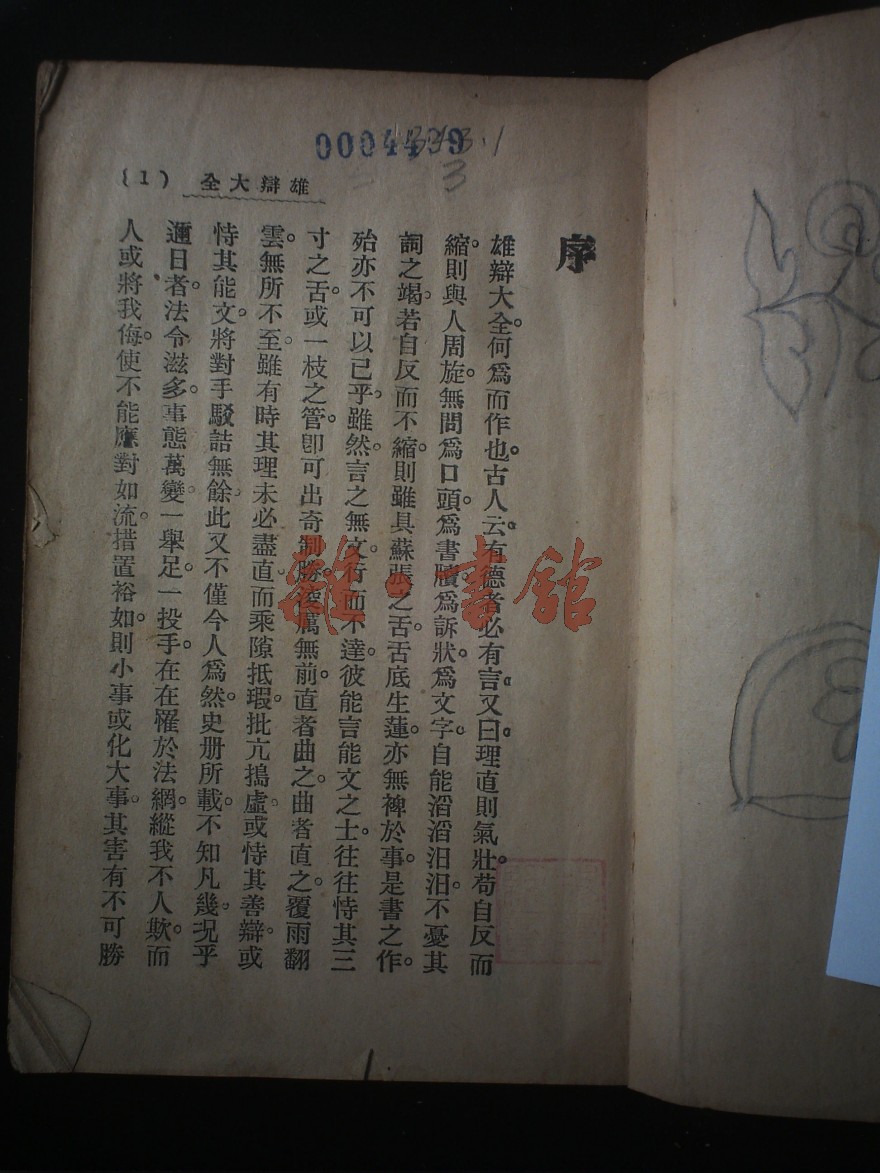 0004439
3
(1) 全大辯雄
序
雄辯大全。何爲而作也。古人云。有德者必有言。又曰。理直則氣壯。苟自反而
縮。則與人周旋。無問爲口頭。爲書牘。爲訴狀。爲文字。自能滔滔汩汩。不憂其
詞之竭。若自反而不縮。則雖具蘇張之舌。舌底生蓮。亦無裨於事。是書之作。
殆亦不可以已乎。雖然。言之無文。行而不達。彼能言能文之士。往往恃其三
寸之舌。或一枝之管。卽可出奇制勝。凌厲無前。直者曲之。曲者直之。覆雨翻
雲。無所不至。雖有時其理未必盡直。而乘隙抵瑕。批亢搗虛。或恃其善辯。或
恃其能文。將對手駁詰無餘。此又不僅今人爲然。史册所載。不知凡幾。况乎
邇日者。法令滋多。事態萬變。一舉足。一投手。在在罹於法網。縱我不人欺。而
人或將我侮。使不能應對如流。措置裕如。則小事或化大事。其害有不可勝
雜·書館